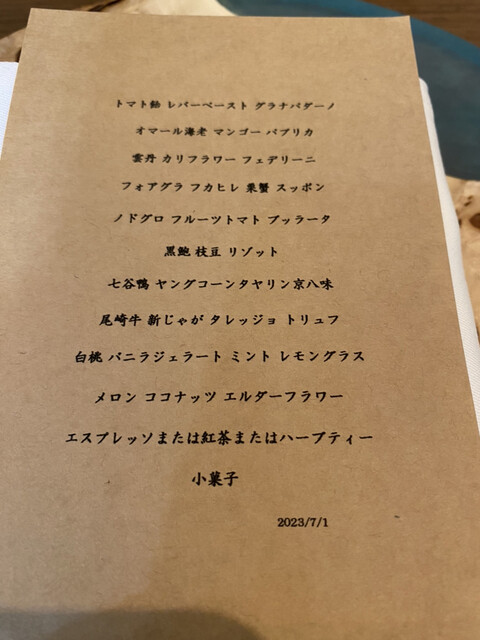 トマト飴 レバーペースト グラナパダーノ
オマール海老 マンゴー パプリカ
雲丹 カリフラワー フェデリーニ
フォアグラ フカヒレ 栗蟹 スッポン
ノドグロ フルーツトマト ブッラータ
黒鮑 枝豆 リゾット
七谷鴨 ヤングコーンタヤリン京八味
尾崎牛 新じゃが タレッジョ トリュフ
白桃 バニラジェラート ミント レモングラス
メロン ココナッツ エルダーフラワー
エスプレッソまたは紅茶またはハーブティー
小菓子
2023/7/1